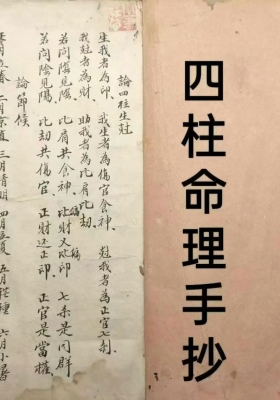 四柱命理手抄
論四柱生尅
生我者為印。我生者為傷官食神。尅我者為正官七刹
我尅者為財。助我者為比肩比劫。
若問陽見陽。比肩共食神。偏財又偏印 七杀是同群
若問陰見陽。比劫共傷官。正財还正印。正官是當權
論節候
正月立春 二月京直 三月清明 四月立夏 五月芒種 六月小暑